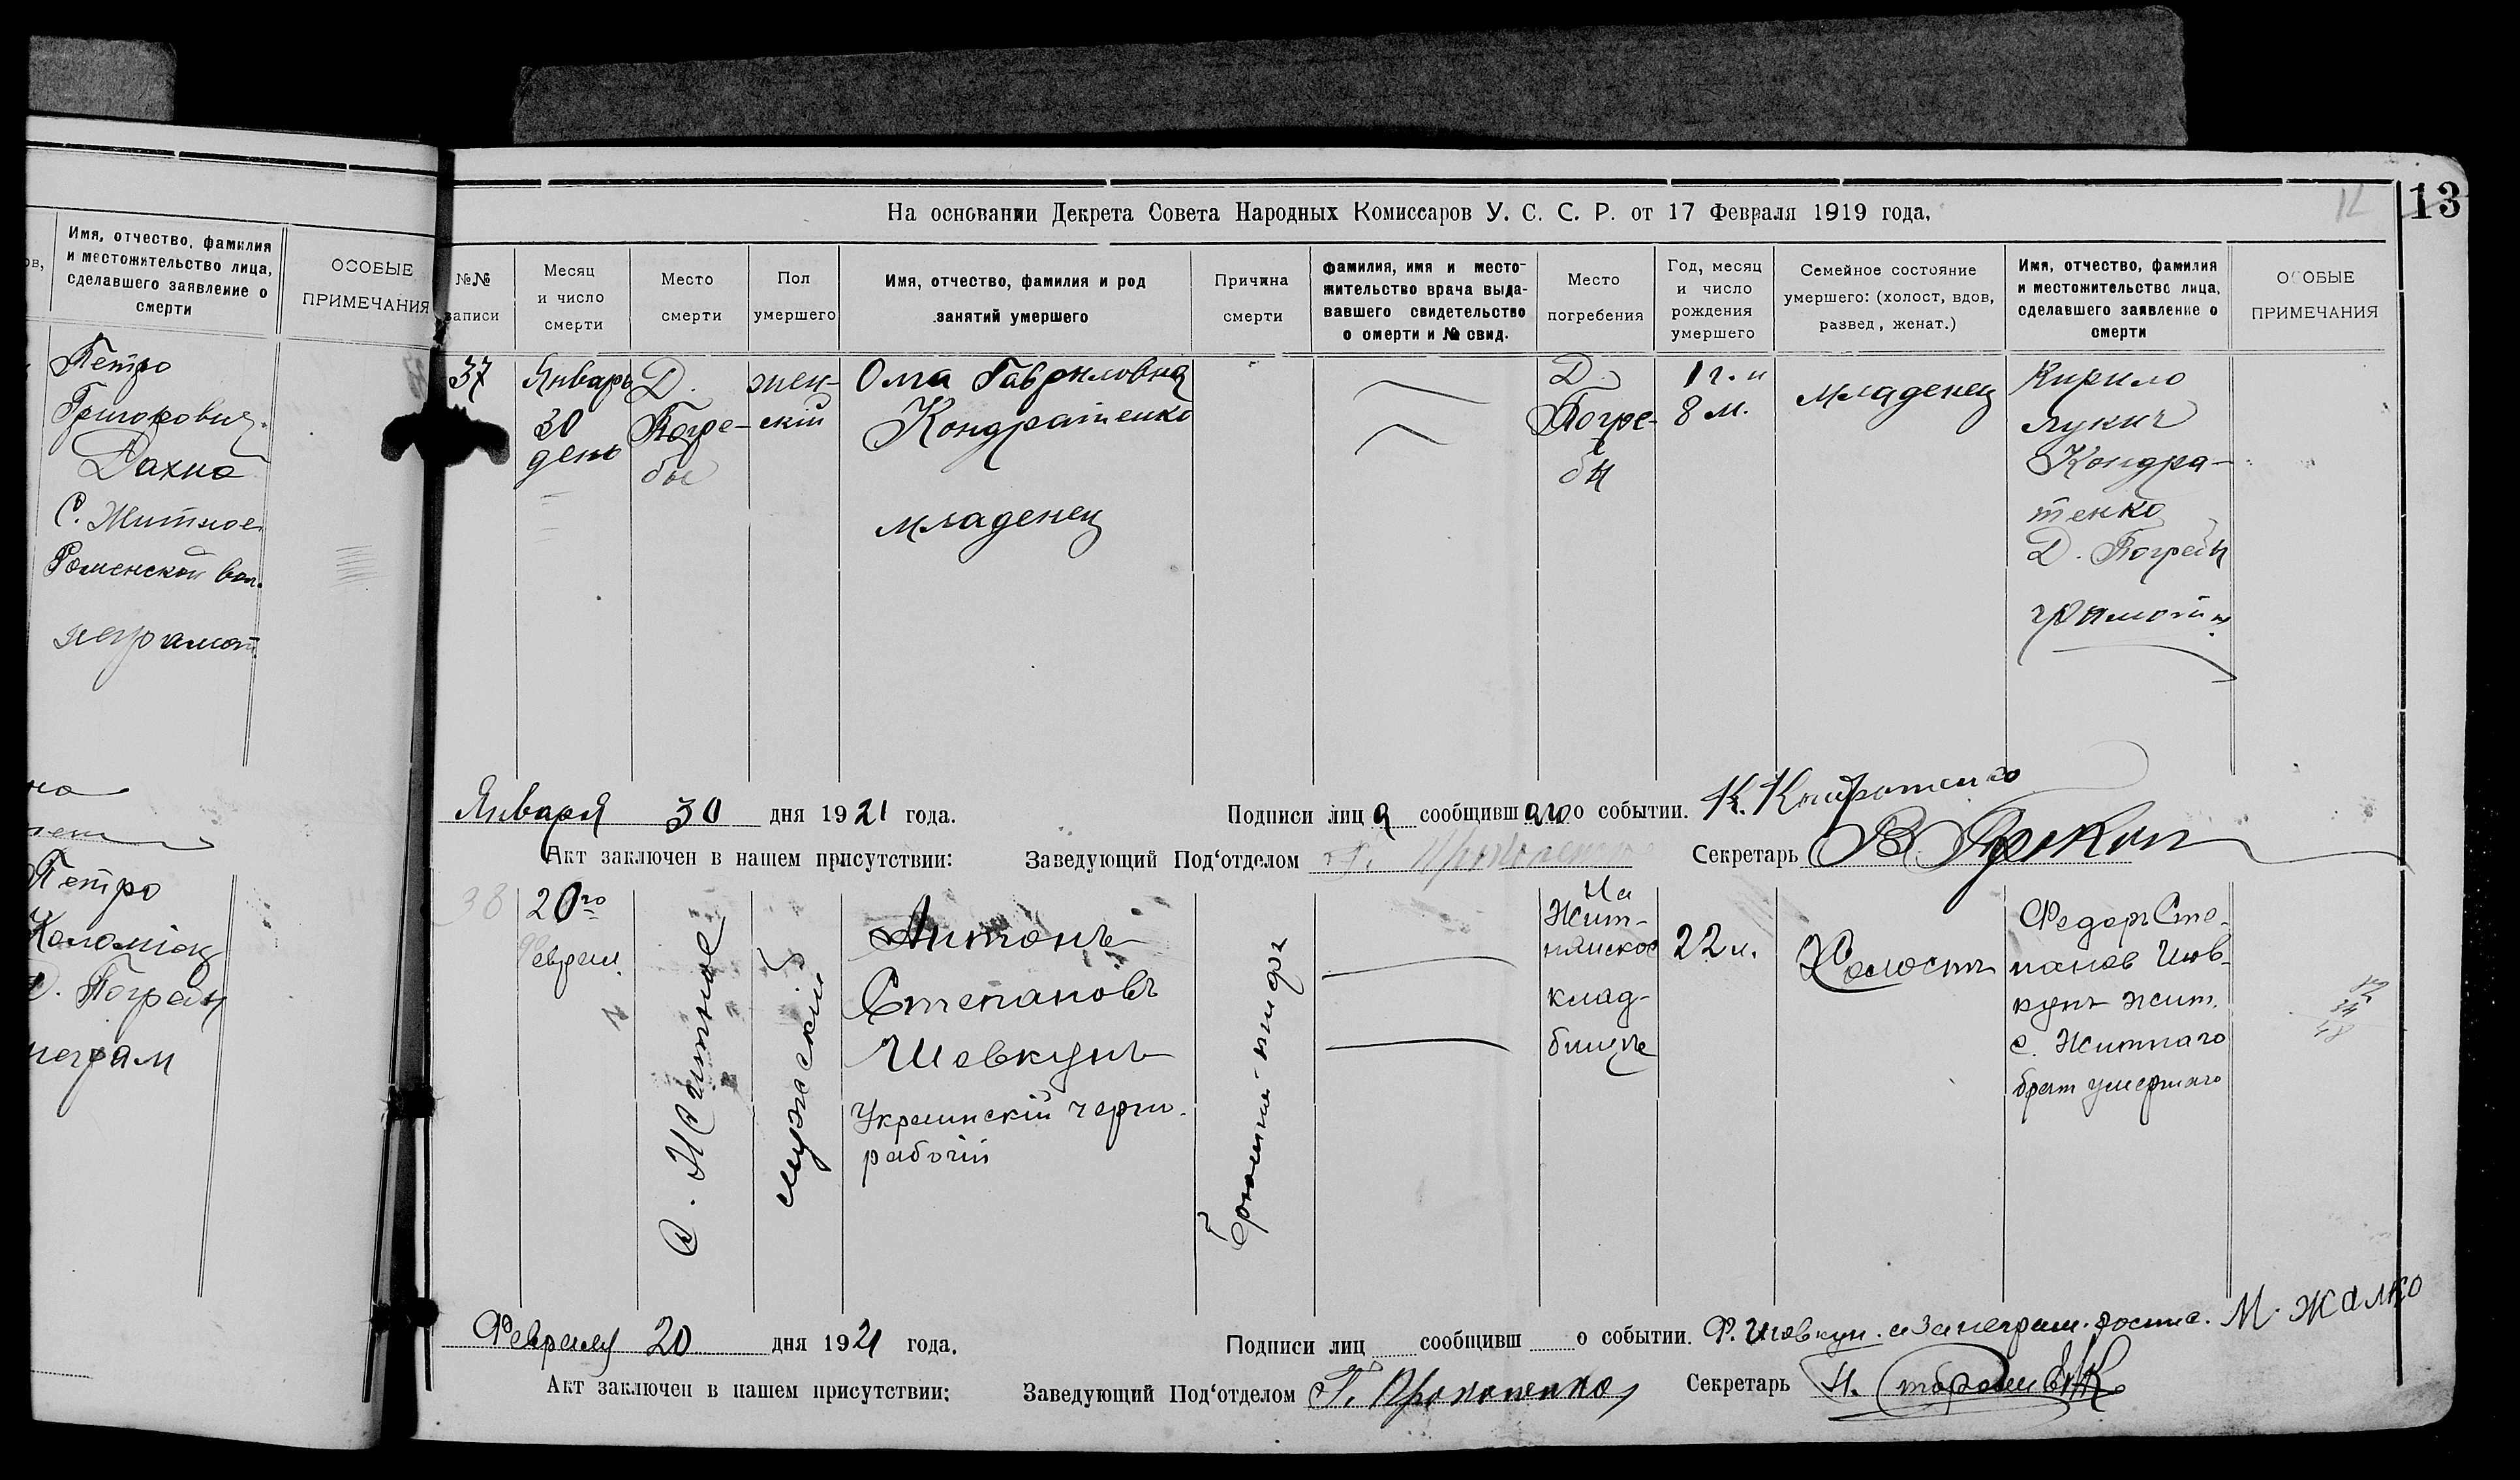 Имя, отчество, фамилия
и местожительство лица,
сделавшего заявление о
смерти
ОСОБЫЕ
ПРИМЕЧАНИЯ
Петро
Григорович
Дахно
С. Житное
Роменской вол.
неграмот.
Петро
Коломіец
Д. Погребы
неграм
12
13
На основании Декрета Совета Народных Комиссаров У. С. С. Р. от 17 Февраля 1919 года,
№№
записи
Месяц
и число
смерти
Место
смерти
Пол
умершего
Имя, отчество, фамилия и род
занятий умершего
Причина
смерти
фамилия, имя и место-
жительство врача выда-
вавшего свидетельство
о смерти и № свид.
Место
погребения
Год, месяц
и число
рождения
умершего
Семейное состояние
умершего: (холост, вдов,
развед, женат.)
Имя, отчество, фамилия
и местожительство лица,
сделавшего заявление о
смерти
ОСОБЫЕ
ПРИМЕЧАНИЯ
37
Январь
30
день
Д.
Погре-
бы
жен-
скій
Гавриловна
Кондратенко
младенец
Д.
Погре-
бы
1 г. и
8 м.
Младенец
Кирило
Лукич
Кондра-
тенко
Д. Погребы
грамотн.
Января 30 дня 1921 года.
Подписи лица сообщившаго о событии. К. Кондратенко
Акт заключен в нашем присутствии: Заведующий Под‘отделом Секретарь
38
20го
Феврал.
с. Житное
мужскій
Антонъ
Степановъ
Шевкунъ
Украинскій черно-
рабочій
Брюшной тифъ
На
Жит-
нянское
клад-
бище
22 л.
Холостъ
Федоръ Сте-
панов Шев-
кунъ жит.
с. Житнаго
брат умершаго
Февраля 20 дня 1921 года.
Подписи лиц сообщивш о событии. Ф. Шевкун. а за неграм. роспис. М. Жалко
Акт заключен в нашем присутствии: Заведующий Под‘отделом Г. Прокопенко Секретарь